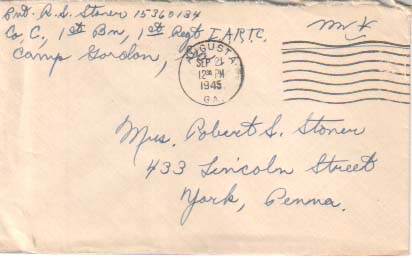 Pvt. R. S. Stoner 15360184
Co C, 1st Bn, 1st Regt I.A.R.T.C.
Camp Gordon, Ga.
AUGUSTA
SEP 21
12 PM
1945
GA.
Mrs. Robert S. Stoner
433 Lincoln Street
York, Penna.